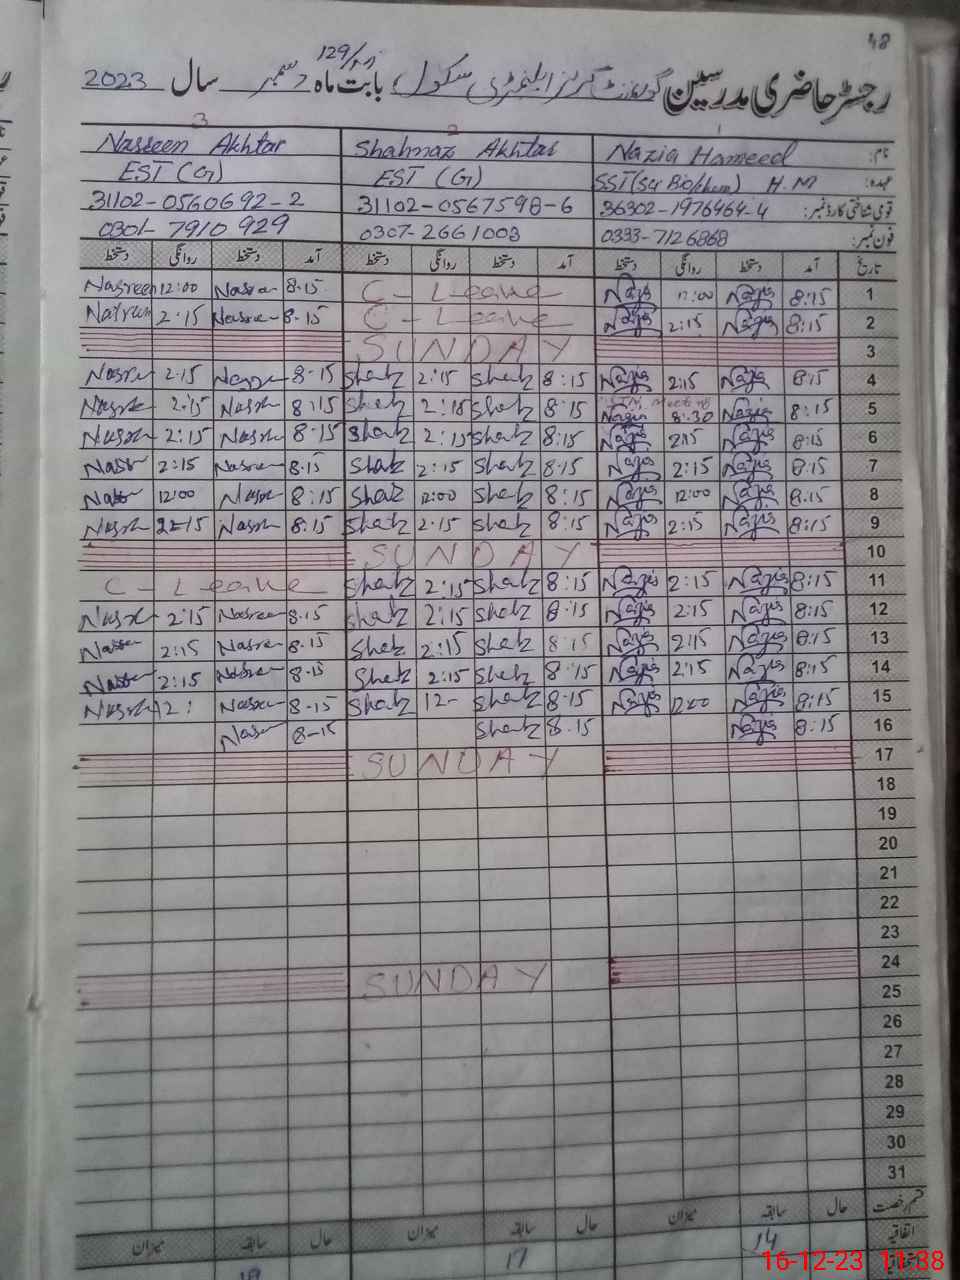 48
129/
رجسٹر حاضری مدرسین گورنمنٹ گرلز ایلیمنٹری سکول بابت ماہ دسمبر سال 2023
3 2 1
Nasreen Akhtar Shahnaz Akhtar Nazia Hameed نام:
EST (G) EST (G) SST (Sci Bio/chem) H.M عہدہ:
31102-0560692-2 31102-0567598-6 36302-1976464-4 قومی شناختی کارڈ نمبر:
0301-7910929 0307-2661003 0333-7126868 فون نمبر:
تاریخ آمد دستخط روانگی دستخط آمد دستخط روانگی دستخط آمد دستخط روانگی دستخط
Nasreen 12:00 Nasreen 8-15 C - Leave Nazia 12:00 Nazia 8:15 1
Nasreen 2-15 Nasreen 8-15 C - Leave Nazia 2:15 Nazia 8:15 2
SUNDAY 3
Nasreen 2-15 Nasreen 8-15 Shah 2:15 Shah 8:15 Nazia 2:15 Nazia 8:15 4
Nasreen 2:15 Nasreen 8:15 Shah 2:15 Shah 8:15 Meeting Nazia 8:30 Nazia 8:15 5
Nasreen 2:15 Nasreen 8-15 Shah 2:15 Shah 8:15 Nazia 2:15 Nazia 8:15 6
Nasr 2:15 Nasreen 8-15 Shah 2:15 Shah 8:15 Nazia 2:15 Nazia 8:15 7
Nasr 12:00 Nasreen 8:15 Shah 12:00 Shah 8:15 Nazia 12:00 Nazia 8:15 8
Nasreen 2-15 Nasreen 8:15 Shah 2:15 Shah 8:15 Nazia 2:15 Nazia 8:15 9
SUNDAY 10
C - Leave Shah 2:15 Shah 8:15 Nazia 2:15 Nazia 8:15 11
Nasreen 2:15 Nasreen 8-15 Shah 2:15 Shah 8:15 Nazia 2:15 Nazia 8:15 12
Nasreen 2:15 Nasreen 8-15 Shah 2:15 Shah 8:15 Nazia 2:15 Nazia 8:15 13
Nasreen 2:15 Nasreen 8-15 Shah 2:15 Shah 8:15 Nazia 2:15 Nazia 8:15 14
Nasreen 12: Nasreen 8-15 Shah 12- Shah 8-15 Nazia 12:00 Nazia 8:15 15
Nasr 8-15 Shah 8.15 Nazia 8:15 16
SUNDAY 17
18
19
20
21
22
23
SUNDAY 24
25
26
27
28
29
30
31
قسم رخصت حال سابقہ میزان حال سابقہ میزان حال سابقہ میزان
اتفاقیہ 14 17
16-12-23 11:38